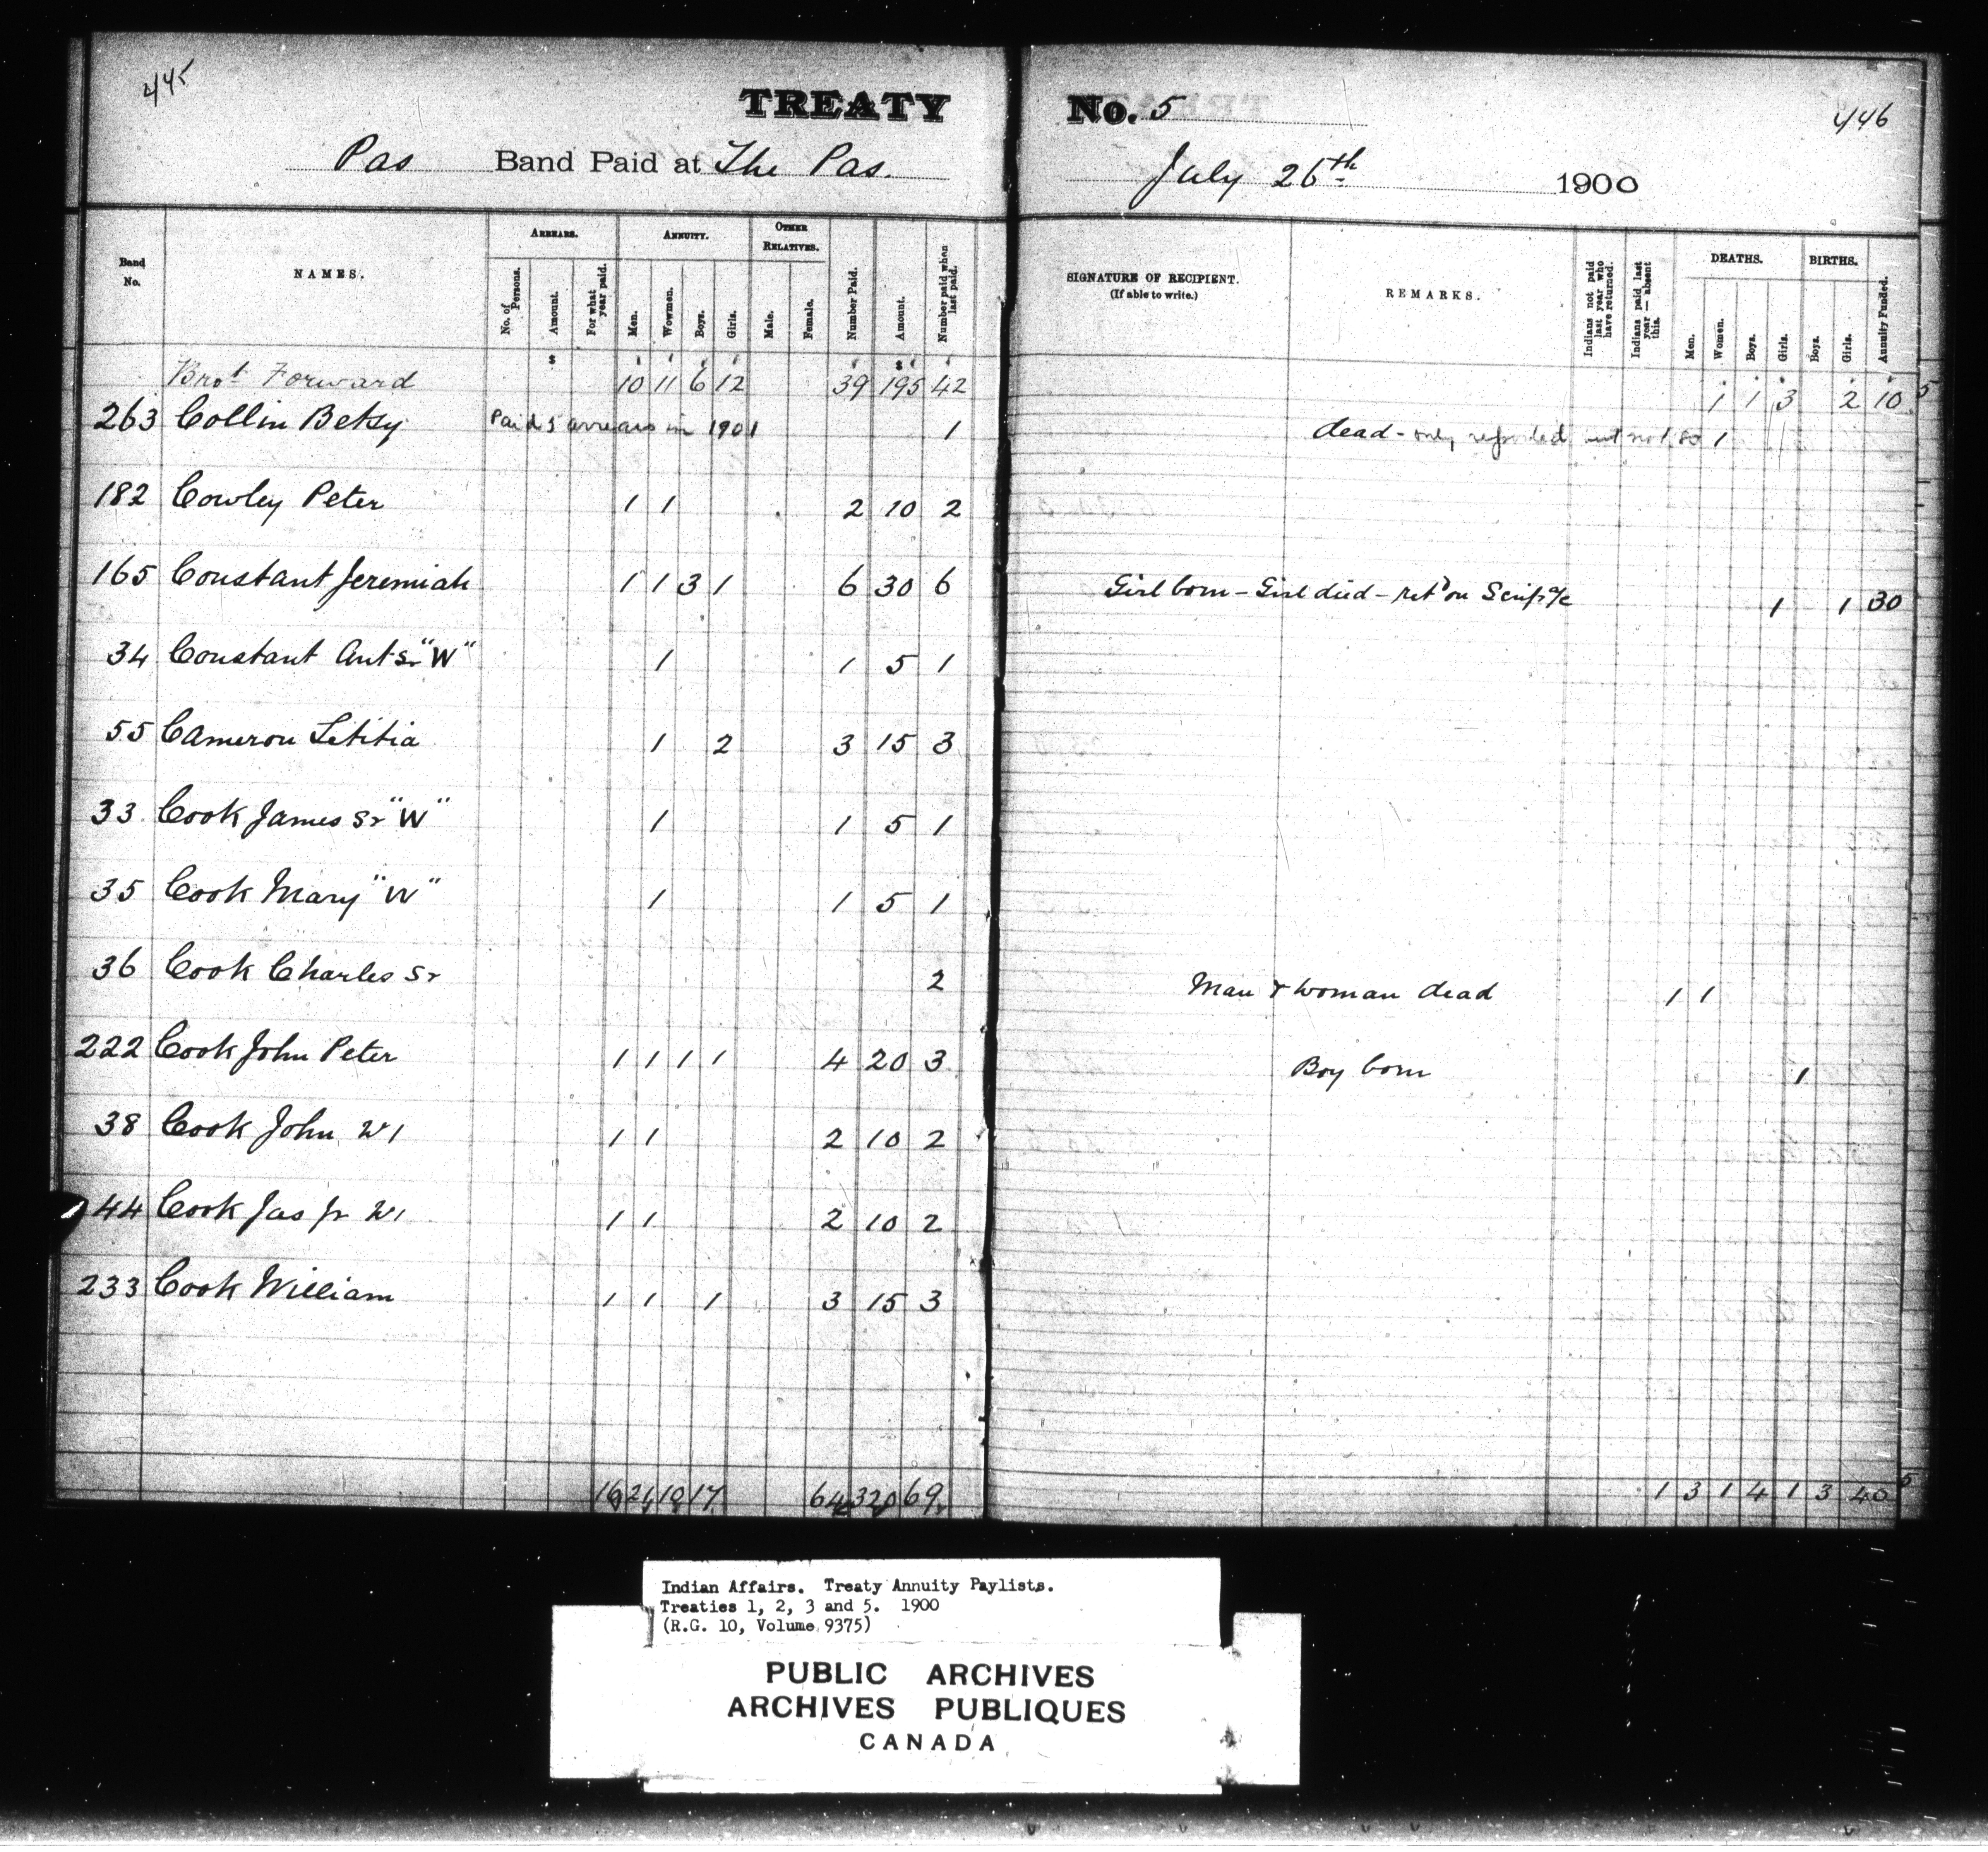 445
TREATY No. 5
446
Pas Band Paid at The Pas. July 26th 1900
Band No.
NAMES.
ARREARS.
No. of Persons.
Amount.
For what year paid.
ANNUITY.
Men.
Wowmen.
Boys.
Girls.
OTHER RELATIVES.
Male.
Female.
Number Paid.
Amount.
Number paid when last paid.
SIGNATURE OF RECIPIENT.
(If able to write.)
REMARKS.
Indians not paid last year who have returned.
Indians paid last year — absent this.
DEATHS.
Men.
Women.
Boys.
Girls.
BIRTHS.
Boys.
Girls.
Annuity Funded.
$ $
Brot Forward 10 11 6 12 39 195 42 1 1 3 2 10 5
263 Collin Betsy Paid 5 arrears in 1901 1 dead - only reported but not so 1
182 Cowley Peter 1 1 2 10 2
165 Constant Jeremiah 1 1 3 1 6 30 6 Girl born - Girl died - ret'd on Scrip a/c 1 1 30
34 Constant Ant Sr "W" 1 1 5 1
55 Cameron Letitia 1 2 3 15 3
33 Cook James Sr "W" 1 1 5 1
35 Cook Mary "W" 1 1 5 1
36 Cook Charles Sr 2 Man & woman dead 1 1
222 Cook John Peter 1 1 1 1 4 20 3 Boy born 1
38 Cook John W1 1 1 2 10 2
44 Cook Jas Jr W1 1 1 2 10 2
233 Cook William 1 1 1 3 15 3
16 21 10 17 64 320 69 1 3 1 4 1 3 40 5
Indian Affairs. Treaty Annuity Paylists.
Treaties 1, 2, 3 and 5. 1900
(R.G. 10, Volume 9375)
PUBLIC ARCHIVES
ARCHIVES PUBLIQUES
CANADA